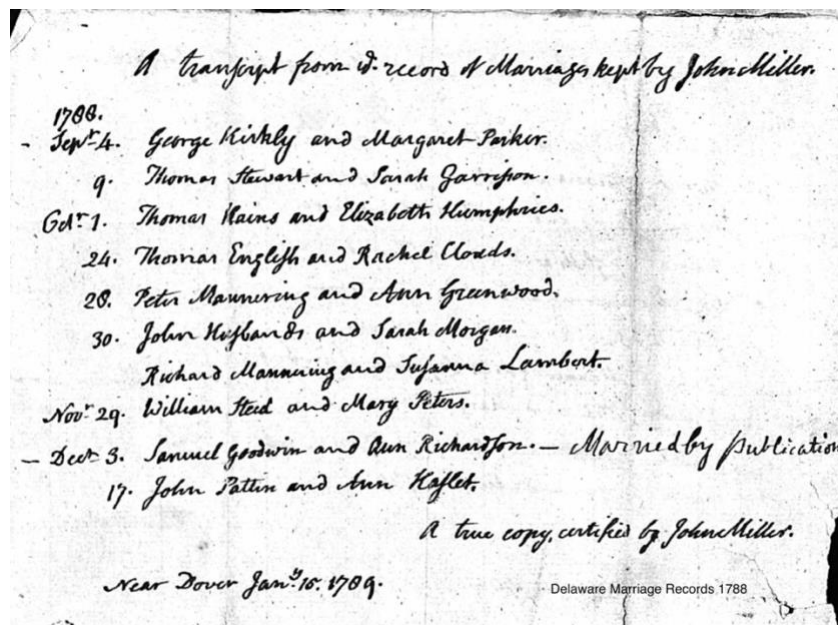 A transcript from ye. record of Marriages kept by John Miller.
1788.
- Sepr. 4. George Kirkly and Margaret Parker.
9. Thomas Stewart and Sarah Garrison.
Octr. 1. Thomas Hains and Elizabeth Humphries.
24. Thomas English and Rachel Clouds.
28. Peter Mannering and Ann Greenwood.
30. John Husbands and Sarah Morgan.
Richard Mannering and Susanna Lambert.
Novr. 29. William Steed and Mary Peters.
- Decr. 3. Samuel Goodwin and Ann Richardson. - Married by publication
17. John Pattin and Ann Haslet.
A true copy, certified by John Miller.
Near Dover Jany. 15. 1789.
Delaware Marriage Records 1788